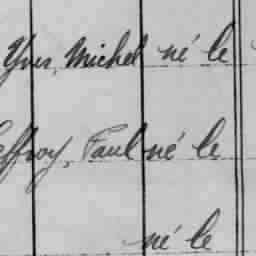 Yves, Michel né le
effroy, Paul né le
né le